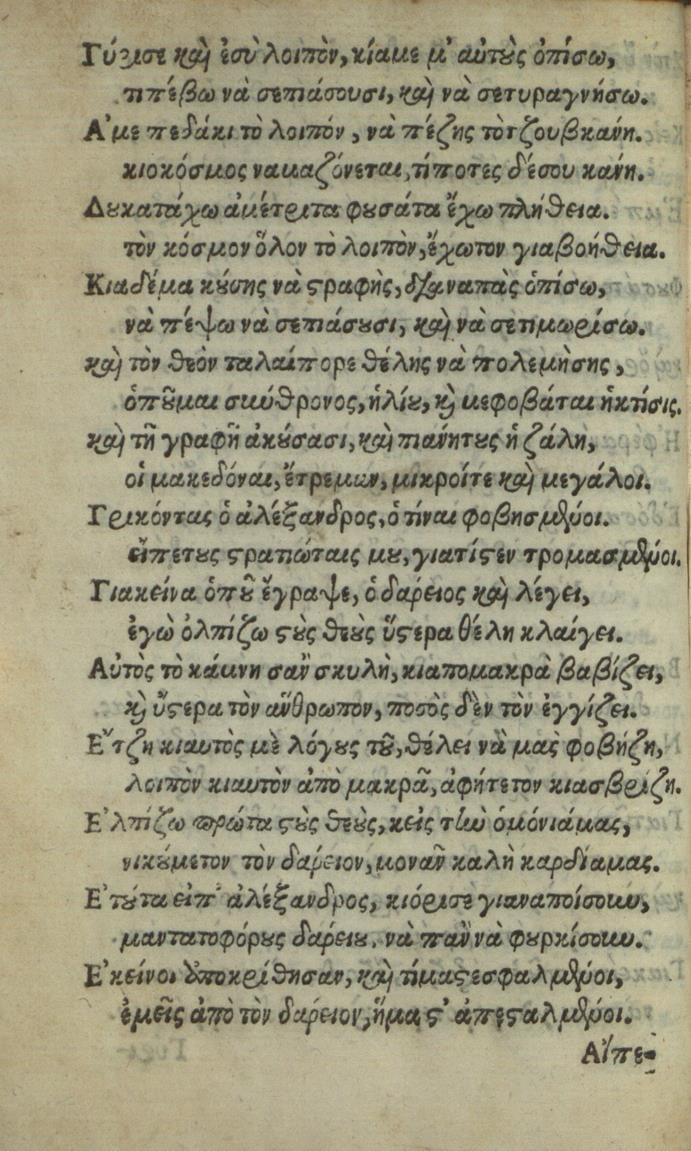 Γύρισε καὶ ἐσὺ λοιπὸν, κίαμε μ' αὐτοὺς ὀπίσω,
τιπέβω νὰ σεπιάσουσι, καὶ νὰ σετυραγνήσω.
Α'με πεδάκι τὸ λοιπόν, νὰ πέζης τὸτζουβκάνη.
κιοκόσμος νακαζόνεται, τίποτες δέσου κάνη.
Δουκατάχω ἀμέτριτα φουσάτα ἔχω πλήθεια.
τὸν κόσμον ὅλον τὸ λοιπὸν, ἔχωτον γιαβοήθεια.
Κιαδέμα κούσης νὰ στραφῆς, διαναπὰς ὀπίσω,
νὰ πέψω νὰ σεπιάσουσι, καὶ νὰ σετιμωρίσω.
καὶ τὸν θεὸν ταλαίπορε θέλης νὰ πολεμὴσης,
ὁποῦμαι σκύθρονος, ἡλίου, καὶ κεφοβάται ἡκτίσις.
καὶ τῆ γραφῆ ἀκούσασι, καὶ πιανήτους ἡ ζάλη,
οἱ μακεδόναι, ἔτρεμων, μικροίτε καὶ μεγάλοι.
Γρικόντας ὁ ἀλέξανδρος, ὁτίναι φοβησμένοι.
εἶπετους στρατιώταις μου, γιατίστεν τρομασμένοι.
Γιακείνα ὁποῦ ἔγραψε, ὁ δαρειος καὶ λέγει,
ἐγὼ ὀλπίζω στοὺς θεοὺς ὕστερα θέλη κλαίγει.
Αὐτὸς τὸ κάμνη σὰν σκυλὴ, κιαπομακρὰ βαβίζει,
καὶ ὕστερα τὸν ἄνθρωπον, ποσὸς δὲν τὸν ἐγγίζει.
Ε'τζη κιαυτὸς μὲ λόγους τοῦ, θέλει νὰ μας φοβήζη,
λοιπὸν κιαυτὸν ἀπὸ μακρᾶ, ἀφήτετον κιασβρίζη.
Ε'λπίζω πρώτα στοὺς θεοὺς, κεἰς τὴν ὁμόνιάμας,
νικούμετον τὸν δάρειον, μονὰν καλὴ καρδίαμας.
Ε'τούτα εἰπ' ἀλέξανδρος, κιόρισε γιαναποίσουν,
μαντατοφόρους δαρείου. νὰ πᾶν νὰ φουρκίσουν.
Ε'κείνοι ὑποκρίθησαν, καὶ τίμαςεσφαλμένοι,
ἐμεῖς ἀπὸ τὸν δαρειον, ἤμας τ' ἀπεσταλμένοι.
Αἴπε-